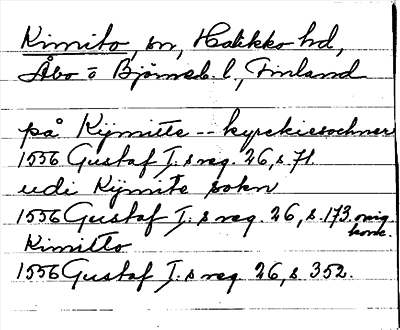 Kimito, sn, Halikko hd,
Åbo o Björneb. l., Finland
på Kijmitte -- kyrckiesochner
1556 Gustaf I:s reg. 26, s. 71.
udi Kÿmite sokn
1556 Gustaf I:s reg. 26, s. 173. orig.
konc.
Kimitto
1556 Gustaf I:s reg. 26, s. 352.